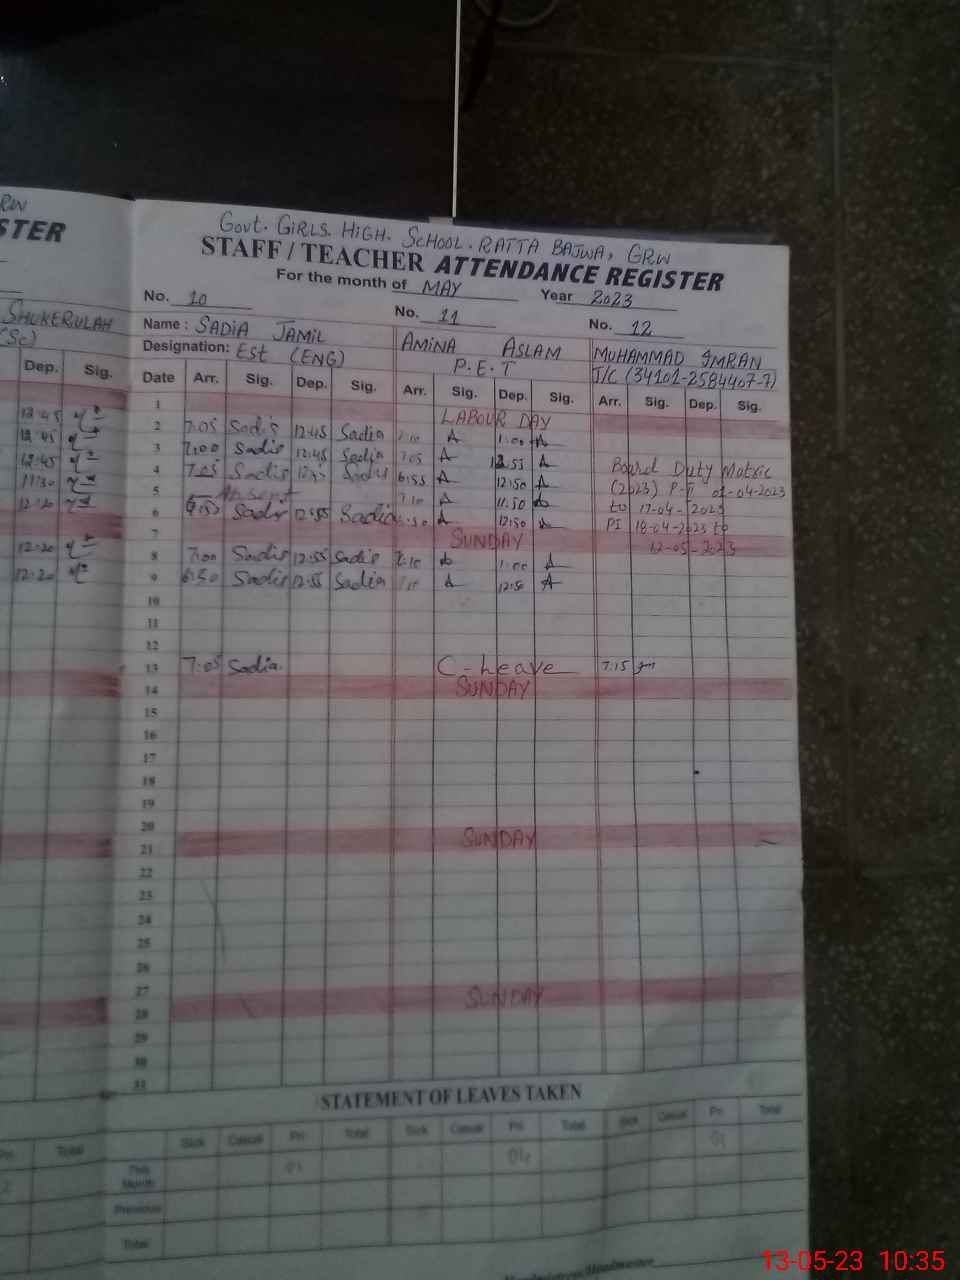 RW
STER
SHUKERULAH
(Sc)
Dep. Sig.
12:45
12:45
12:45
11:30
12:20
12:20
12:20
Govt. GIRLS. HIGH. SCHOOL. RATTA BAJWA, GRW
STAFF / TEACHER ATTENDANCE REGISTER
For the month of MAY Year 2023
No. 10 No. 11 No. 12
Name : SADIA JAMIL AMINA ASLAM MUHAMMAD IMRAN
Designation: Est (ENG) P.E.T J/C (34101-2584407-7)
Date Arr. Sig. Dep. Sig. Arr. Sig. Dep. Sig. Arr. Sig. Dep. Sig.
1 LABOUR DAY
2 7:05 Sadia 12:45 Sadia 7:10 A 1:00 A
3 7:00 Sadia 12:45 Sadia 7:05 A 12:55 A Board Duty Matric
4 7:05 Sadia Sadia 6:55 A 12:50 A (2023) P-II 01-04-2023
5 Absent 7:10 A 11:50 A to 17-04-2023
6 6:55 Sadia 12:55 Sadia 6:50 A 12:50 A PI 18-04-2023 to
7 SUNDAY 12-05-2023
8 7:00 Sadia 12:55 Sadia 7:10 A 1:00 A
9 6:50 Sadia 12:55 Sadia 7:10 A 12:50 A
10
11
12
13 7:05 Sadia. C-Leave 7:15
14 SUNDAY
15
16
17
18
19
20
21 SUNDAY
22
23
24
25
26
27
28 SUNDAY
29
30
31
STATEMENT OF LEAVES TAKEN
Pri Total Sick Casual Pri Total Sick Casual Pri Total Sick Casual Pri Total
2 This Month 01 04 01
Previous
Total
13-05-23 10:35